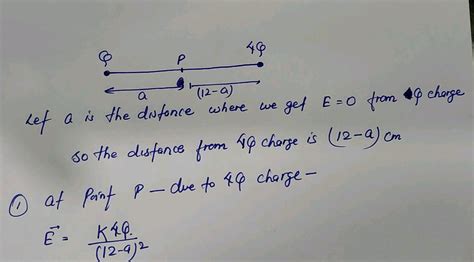 Q P 4Q
a (12-a)
Let a is the distance where we get E=0 from Q charge
so the distance from 4Q charge is (12-a) cm
① at Point P — due to 4Q charge —
E⃗ = K4Q
(12-a)²